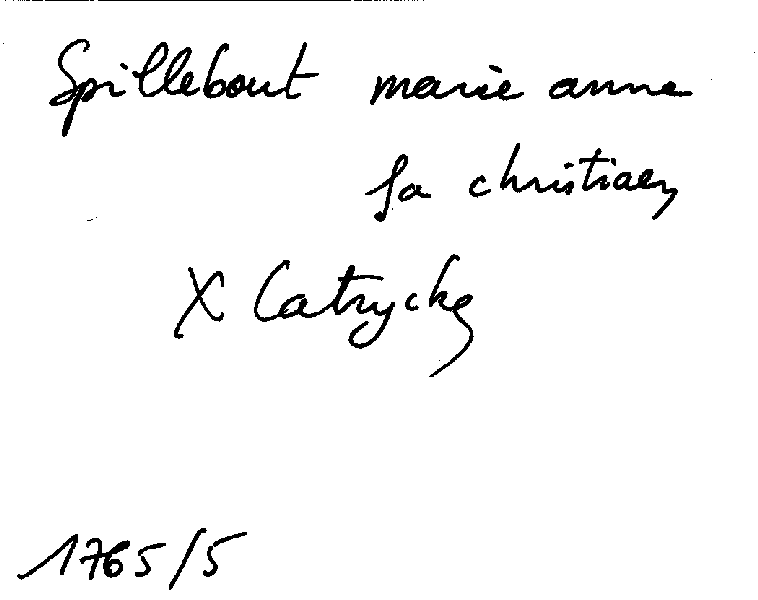 Spillebout marie anne
fa christiaen
X Catrycke
1765/5